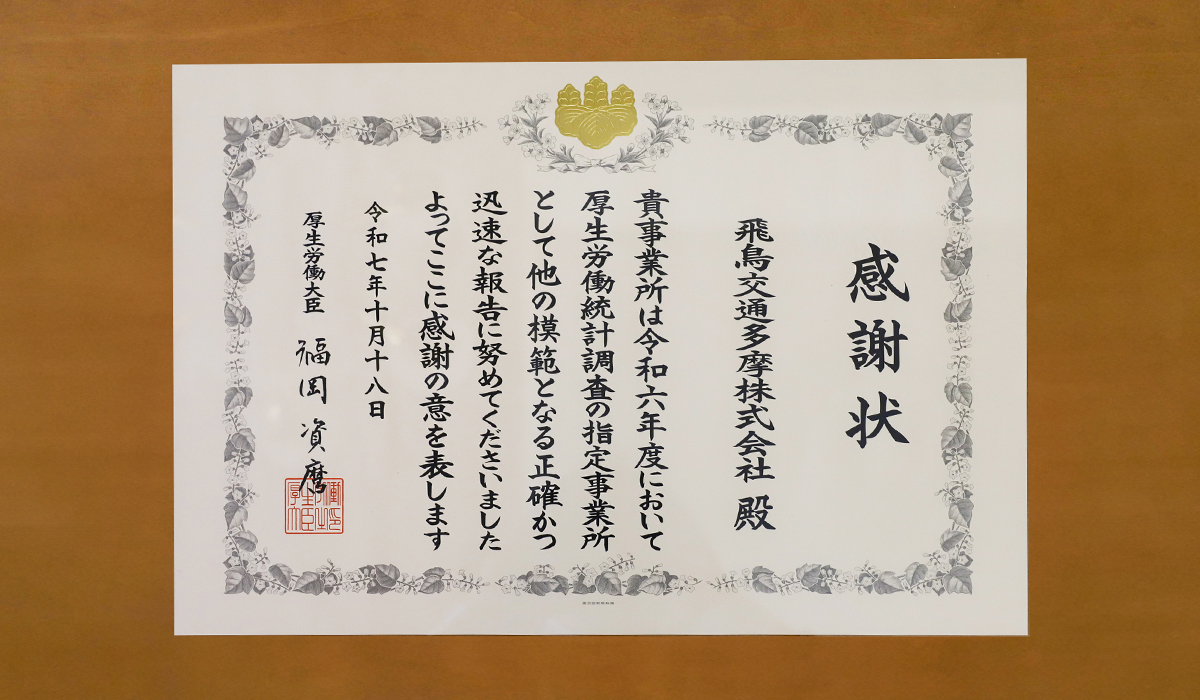 感謝状
飛鳥交通多摩株式会社 殿
貴事業所は令和六年度において
厚生労働統計調査の指定事業所
として他の模範となる正確かつ
迅速な報告に努めてくださいました
よってここに感謝の意を表します
令和七年十月十八日
厚生労働大臣 福岡資麿